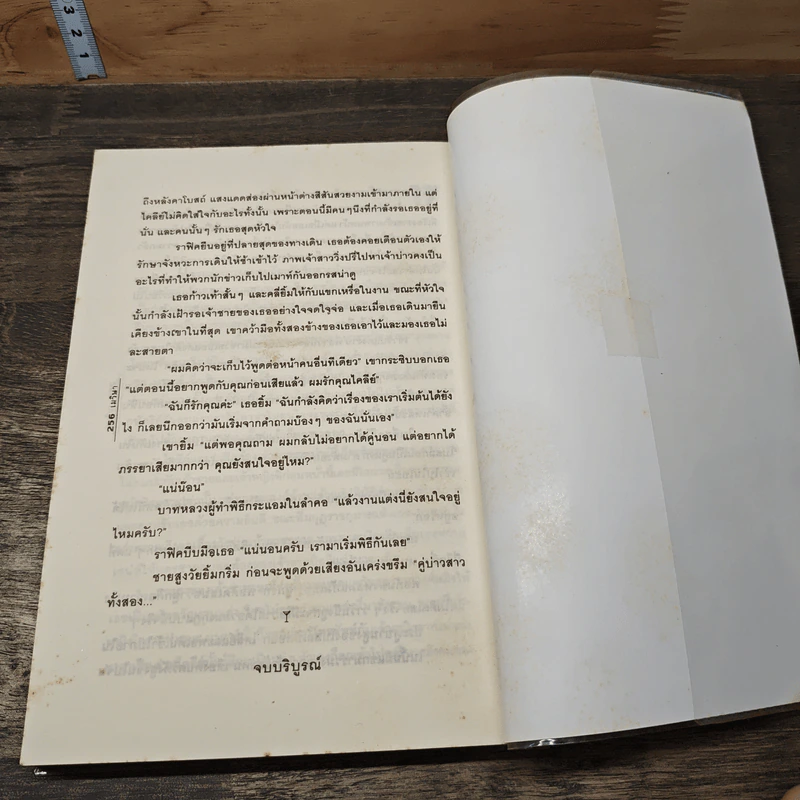 ถึงหลังคาโบสถ์ แสงแดดส่องผ่านหน้าต่างสีสันสวยงามเข้ามาภายใน แต่
ไคลีย์ไม่คิดใส่ใจกับอะไรทั้งนั้น เพราะตอนนี้มีคนๆนึงที่กำลังรอเธออยู่ที่
นั่น และคนนั้นๆ รักเธอสุดหัวใจ
ราฟิคยืนอยู่ที่ปลายสุดของทางเดิน เธอต้องคอยเตือนตัวเองให้
รักษาจังหวะการเดินให้ช้าเข้าไว้ ภาพเจ้าสาววิ่งปรี่ไปหาเจ้าบ่าวคงเป็น
อะไรที่ทำให้พวกนักข่าวเก็บไปเมาท์กันออกรสน่าดู
เธอก้าวเท้าสั้นๆ และคลี่ยิ้มให้กับแขกเหรื่อในงาน ขณะที่หัวใจ
นั้นกำลังเฝ้ารอเจ้าชายของเธออย่างใจจดใจจ่อ และเมื่อเธอเดินมายืน
เคียงข้างเขาในที่สุด เขาคว้ามือทั้งสองข้างของเธอเอาไว้และมองเธอไม่
ละสายตา
"ผมคิดว่าจะเก็บไว้พูดต่อหน้าคนอื่นทีเดียว" เขากระซิบบอกเธอ
"แต่ตอนนี้อยากพูดกับคุณก่อนเสียแล้ว ผมรักคุณไคลีย์"
"ฉันก็รักคุณค่ะ" เธอยิ้ม "ฉันกำลังคิดว่าเรื่องของเราเริ่มต้นได้ยัง
ไง ก็เลยนึกออกว่ามันเริ่มจากคำถามบ๊องๆ ของฉันนั่นเอง"
เขายิ้ม "แต่พอคุณถาม ผมกลับไม่อยากได้คู่นอน แต่อยากได้
ภรรยาเสียมากกว่า คุณยังสนใจอยู่ไหม?"
"แน่น๊อน"
บาทหลวงผู้ทำพิธีกระแอมในลำคอ "แล้วงานแต่งนี่ยังสนใจอยู่
ไหมครับ?"
ราฟิคบีบมือเธอ "แน่นอนครับ เรามาเริ่มพิธีกันเลย"
ชายสูงวัยยิ้มกริ่ม ก่อนจะพูดด้วยเสียงอันเคร่งขรึม "คู่บ่าวสาว
ทั้งสอง..."
จบบริบูรณ์
256 เมวิษา
3
2
1